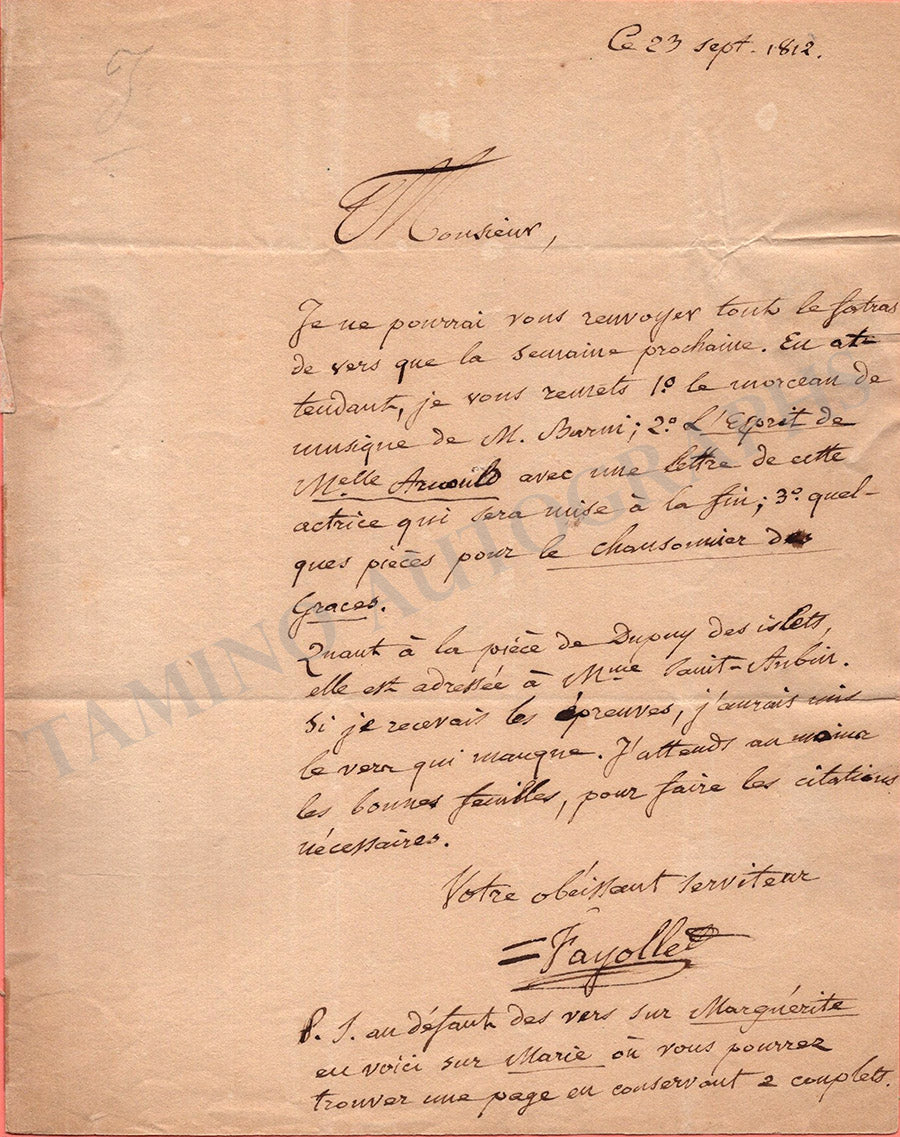 Ce 23 sept. 1812.
Monsieur,
Je ne pourrai vous renvoyer tout le fatras
de vers que la semaine prochaine. En at-
tendant, je vous remets 1.º le morceau de
musique de M. Burni; 2.º L'Esprit de
Melle Arnould avec une lettre de cette
actrice qui sera mise à la fin; 3.º quel-
ques pièces pour le chansonnier des
Graces.
Quant à la pièce de Dupuy des islets,
elle est adressée à Mme Saint-Aubin.
Si je recevais les épreuves, j'aurais mis
le vers qui manque. J'attends au moins
les bonnes feuilles, pour faire les citations
nécessaires.
Votre obéissant serviteur
=Fayolle
P. S. au défaut des vers sur Marguérite
en voici sur Marie où vous pourrez
trouver une page en conservant 2 couplets.
TAMINO AUTOGRAPHS